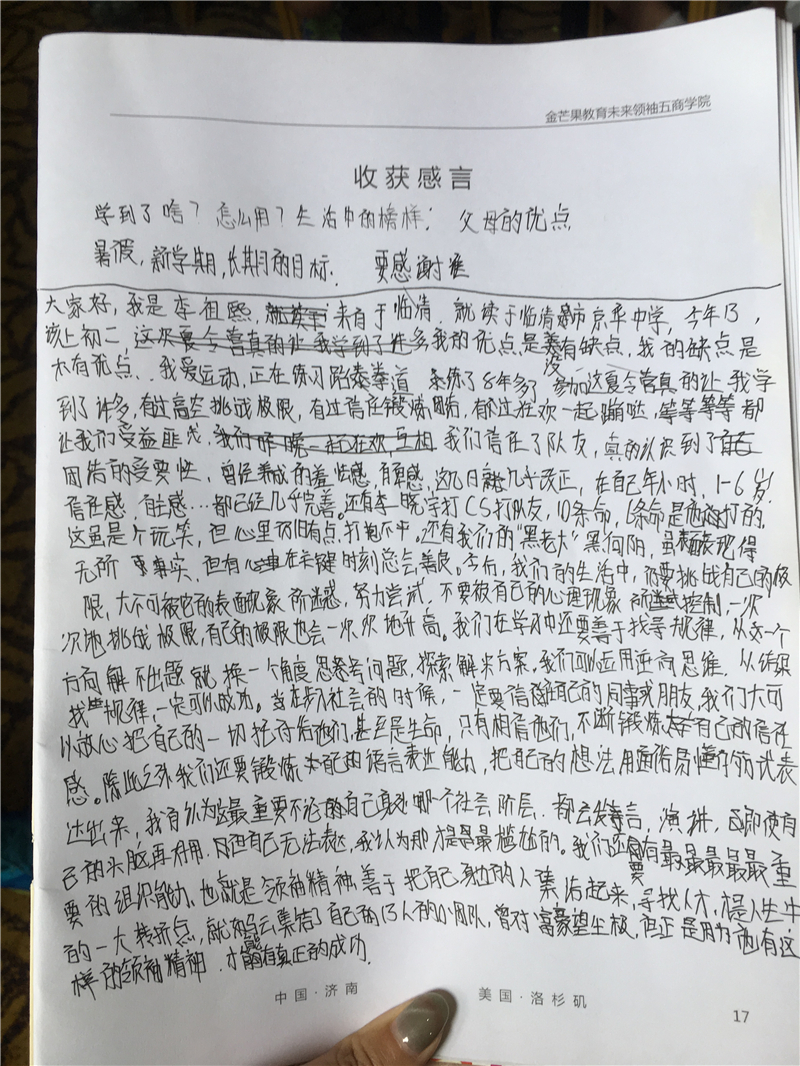 金芒果教育未来领袖五商学院
收获感言
学到了啥？怎么用？生活中的榜样； 父母的优点
暑假，新学期，长期的目标． 要感谢谁
大家好，我是李祖熙，来自于临清．就读于临清市京华中学，今年13，
该上初二，这次夏令营真的让我学到了许多我的优点是没有缺点，我的缺点是
太有优点．我爱运动，正在练习跆拳道 练了8年多了，参加这夏令营真的让我学
到了许多，有过高空挑战极限，有过信任锻炼团结，有过在欢一起蹦哒，等等等等都
让我们受益匪浅，我们信任了队友，真的认识到了
团结的重要性，曾经养成的羞怯感，自卑感，这几日几乎改正，在自己年小时，1-6岁
信任感，自主感…都已经几乎完善。还有李晓宇打CS打队友，10条命，6条命是他打的，
这虽是个玩笑，但心里仍旧有点，打抱不平。还有我们的“黑老大”黑向阳，虽表现得
无所事事实，但有心在关键时刻总会善良。今后，我们的生活中，仍要挑战自己的极
限，大不可被它的表面现象所迷惑，努力尝试，不要被自己的心理现象所控制，一次
次地挑战极限，有自己的极限也会一次次地升高。我们在学习中还要善于找寻规律，从这一个
方向解不出题就换一个角度思考问题，探索解决方案，我们可以运用逆向思维，从结果
找规律，一定可以成功。当在步入社会的时候，一定要信任自己的同事或朋友，我们大可
以放心把自己的一切托付给他们，甚至是生命，只有相信他们，不断锻炼自己的信任
感。除此之外我们还要锻炼自己的语言表达能力，把自己的想法用通俗易懂的方式表
达出来，我自认为这最重要不论自己身处哪个社会阶层．都会发言，演讲，即使自
己的头脑再好用．但自己无法表达，我认为那才是最尴尬的。我们还要有最最最最最重
要的组织能力，也就是领袖精神善于把自己身边的人集结起来，寻找人才，才是人生中
的一大转折点，就如马云集结了自己的13人的小团队，曾对富豪望尘极，但正是因为他有这
样的领袖精神．才能有真正的成功．
中国·济南
美国·洛杉矶
17